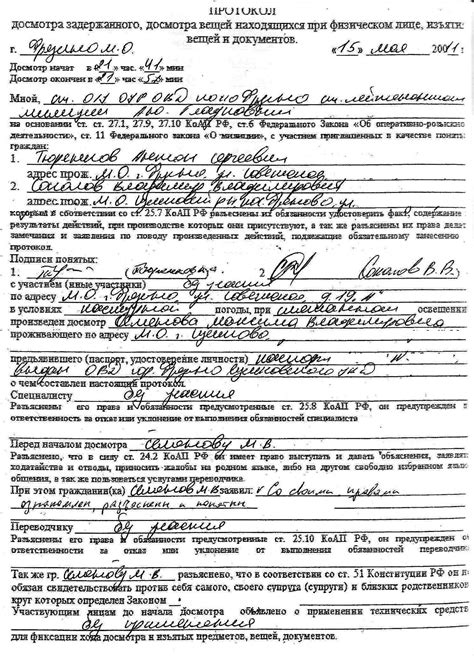 ПРОТОКОЛ
досмотра задержанного, досмотра вещей находящихся при физическом лице, изъяти
вещей и документов.
г. Фрязино М.О. «15» мая 2001 г:
Досмотр начат в 21 час. «41» мин
Досмотр окончен в 21 час «5 мин
Мной, ст. ОУ ОУР ОВД по г. Фрязино ст. лейтенантом
милиции
на основании ст. ст. 27.1, 27.9, 27.10 КоАП РФ, ст.6 Федерального Закона «Об оперативно-розыскно
деятельности», ст. 11 Федерального закона «О милиции», с участием приглашенных в качестве понятн
граждан:
1. Антон Сергеевич
адрес прож. М.О. г. Фрязино, ул. Советская
2. Соколов Владимир Владимирович
адрес прож. М.О. Щелковский р-н
которым в соответствии со ст. 25.7 КоАП РФ разъяснены их обязанности удостоверить факт, содержание
результаты действий, при производстве которых они присутствуют, а так же разъяснены их права делат
замечания и заявления по поводу произведенных действий, подлежащие обязательному занесению
протокол.
Подписи понятых:
1. 2. Соколов В.В.
с участием (иные участники) без участия
по адресу М.О. г. Фрязино, ул. Советская, д. 19
в условиях погоды, при освещени
произведен досмотр Семенова Максима Владимировича
проживающего по адресу М.О. г. Щелково
предъявившего (паспорт, удостоверение личности) паспорт
выдан ОВД гор. Фрязино Щелковского
о чем составлен настоящий протокол.
Специалисту без участия
Разъяснены его права и обязанности предусмотренные ст. 25.8 КоАП РФ, он предупрежден о
ответственность за отказ или уклонение от выполнения обязанностей специалиста
Перед началом досмотра Семенову М.В.
Разъяснено, что в силу ст. 24.2 КоАП РФ он имеет право выступать и давать объяснения, заявлят
ходатайства и отводы, приносить жалобы на родном языке, либо на другом свободно избранном язык
общения, а так же пользоваться услугами переводчика.
При этом гражданин(ка) Семенов М.В. заявил: Со своими правами
ознакомлен разъяснены и понятны
Переводчику без участия
Разъяснены его права и обязанности предусмотренные ст. 25.10 КоАП РФ, он предупрежден о
ответственности за отказ или уклонение от выполнения обязанностей переводчик
Так же гр. Семенову М.В. разъяснено, что в соответствии со ст. 51 Конституции РФ он н
обязан свидетельствовать против себя самого, своего супруга (супруги) и близких родственников
круг которых определен Законом
Участвующим лицам до начала досмотра объявлено о применении технических средст
без применения
для фиксации хода досмотра и изъятых предметов, вещей, документов.